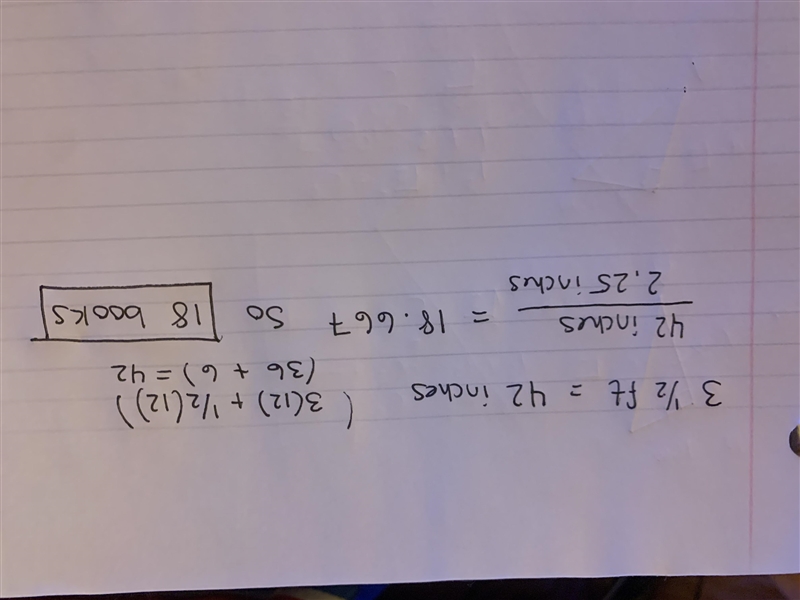 3 1/2 ft = 42 inches (3(12) + 1/2(12))
(36 + 6) = 42
42 inches
2.25 inches
= 18.667 so 18 books